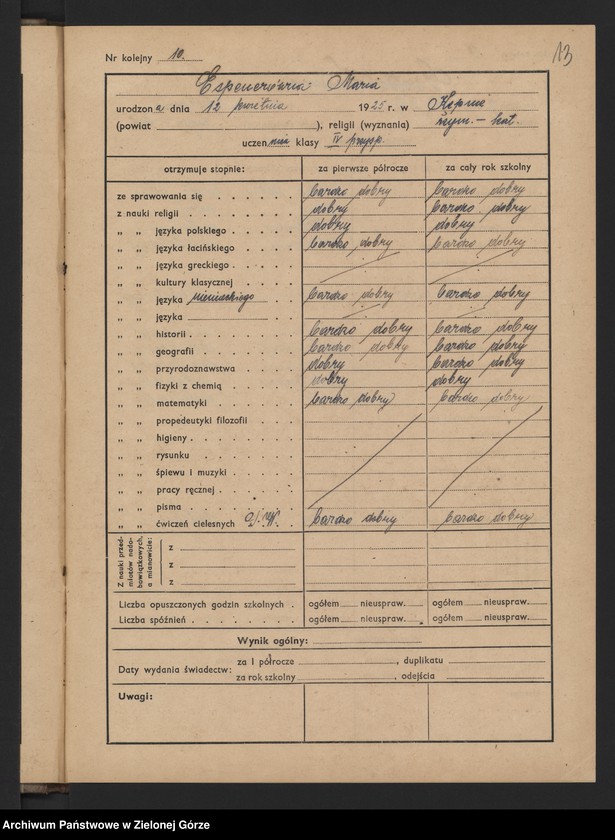 13
Nr kolejny 10.
Maria
urodzona dnia 12 kwietnia 1925 r. w Kępnie
(powiat ), religii (wyznania) rzym. – kat.
uczennica klasy IV przysp.
otrzymuje stopnie: za pierwsze półrocze za cały rok szkolny
ze sprawowania się bardzo dobry bardzo dobry
z nauki religii dobry bardzo dobry
„ „ języka polskiego dobry dobry
„ „ języka łacińskiego bardzo dobry bardzo dobry
„ „ języka greckiego
„ „ kultury klasycznej
„ „ języka niemieckiego bardzo dobry bardzo dobry
„ „ języka
„ „ historii bardzo dobry bardzo dobry
„ „ geografii bardzo dobry bardzo dobry
„ „ przyrodoznawstwa dobry bardzo dobry
„ „ fizyki z chemią dobry dobry
„ „ matematyki bardzo dobry bardzo dobry
„ „ propedeutyki filozofii
„ „ higieny
„ „ rysunku
„ „ śpiewu i muzyki
„ „ pracy ręcznej
„ „ pisma
„ „ ćwiczeń cielesnych bardzo dobry bardzo dobry
Z nauki przed-
miotów nado-
bowiązkowych,
a mianowicie:
z
z
z
Liczba opuszczonych godzin szkolnych ogółem nieuspraw. ogółem nieuspraw.
Liczba spóźnień ogółem nieuspraw. ogółem nieuspraw.
Wynik ogólny:
Daty wydania świadectw: za I półrocze , duplikatu
za rok szkolny , odejścia
Uwagi:
Archiwum Państwowe w Zielonej Górze